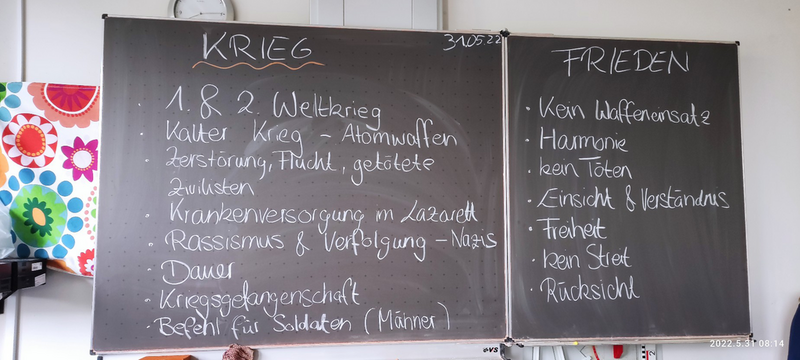 KRIEG
31.05.22
· 1. & 2. Weltkrieg
· Kalter Krieg – Atomwaffen
· Zerstörung, Flucht, getötete
Zivilisten
· Krankenversorgung im Lazarett
· Rassismus & Verfolgung – Nazis
· Dauer
· Kriegsgefangenschaft
· Befehl für Soldaten (Männer)
FRIEDEN
· Kein Waffeneinsatz
· Harmonie
· kein Töten
· Einsicht & Verständnis
· Freiheit
· kein Streit
· Rücksicht
2022.5.31 08:14